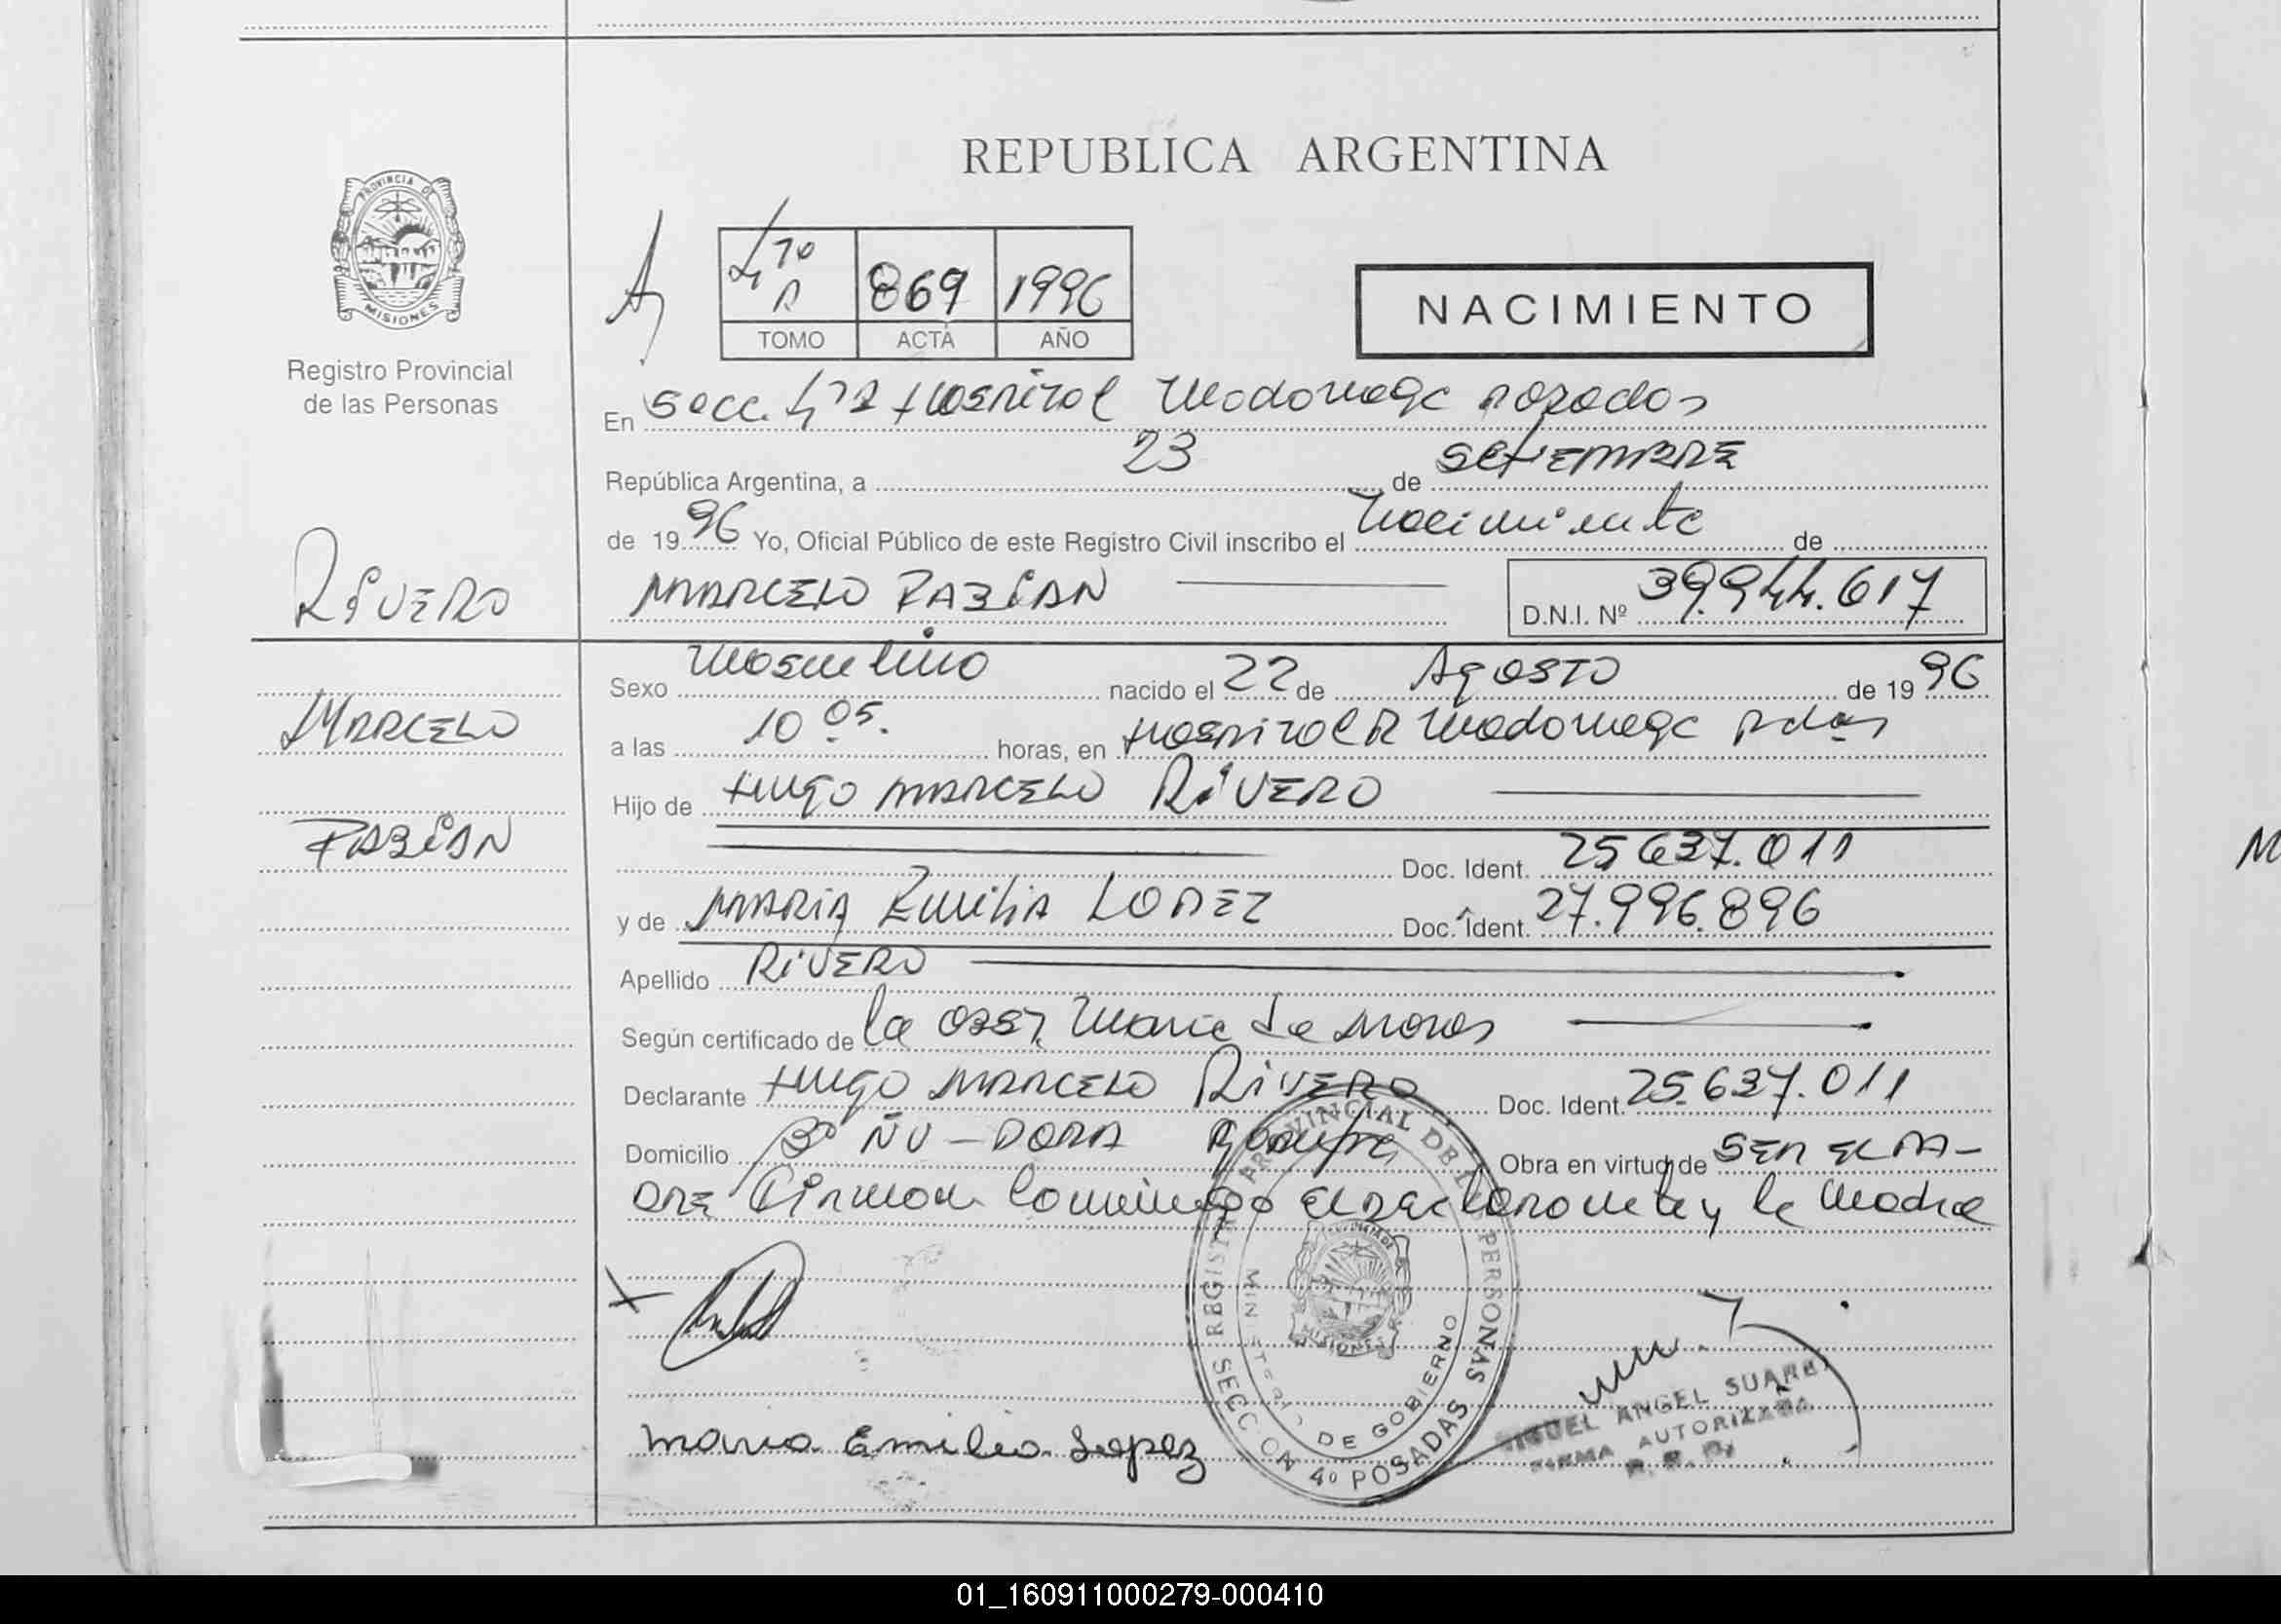 REPUBLICA ARGENTINA
PROVINCIA DE
MISIONES
Registro Provincial
de las Personas
869 1996
TOMO ACTA AÑO
NACIMIENTO
En Secc. 4ta Hospital Madariaga Posadas
República Argentina, a 23 de SEtiEMBRE
de 1996 Yo, Oficial Público de este Registro Civil inscribo el Nacimiento de
RiVERO
MARCELO FABIAN D.N.I. Nº 39.944.617
Sexo Masculino nacido el 22 de AgOSTO de 1996
MARCELO
a las 10 05. horas, en Hospital R Madariaga Pdas
Hijo de HugO MARCELO RiVERO
FABIAN
Doc. Ident. 25 637.011
y de MARiA EmiliA LOPEZ Doc. Ident. 27.996.896
Apellido RiVERO
Según certificado de la OBST. Maria de
Declarante HugO MARCELO RiVERO Doc. Ident. 25.637.011
Domicilio Bº ÑU-PORA Garupa Obra en virtud de SER EL PA-
DRE Firman conmigo el declarante y la Madre
maria Emilia Lopez
REGISTRO PROVINCIAL DE LAS PERSONAS
MINISTERIO DE GOBIERNO
MISIONES
SECCION 4º POSADAS
MIGUEL ANGEL SUAREZ
FIRMA AUTORIZADA
R. P. P.
01_160911000279-000410